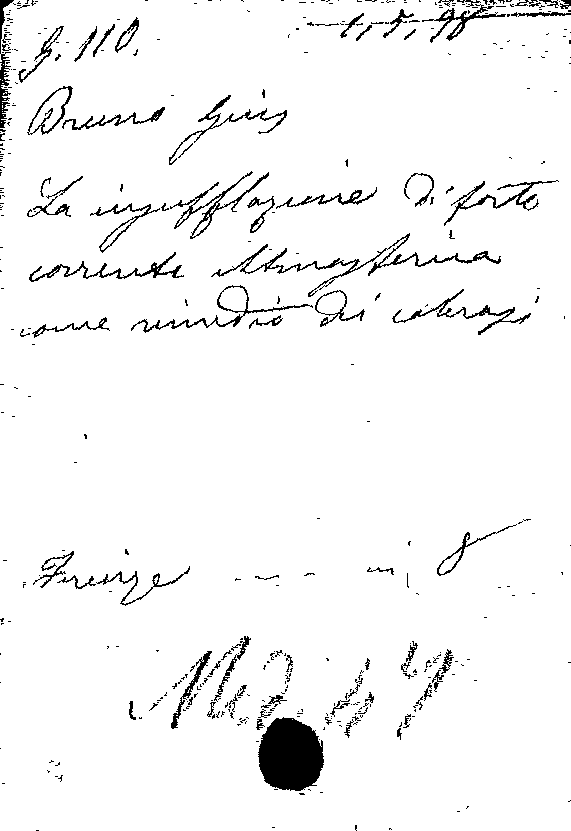 G. 110. 1, 5, 98
Bruno Gius
La insufflazione di forte
corrente atmosferica
come rimedio dei colerosi
Firenze - - - in 8
Med.